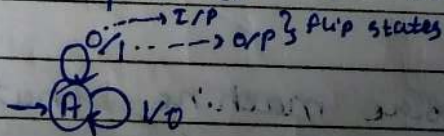 0 ---> I/P
/1 ---> O/P } flip states
A 1/0